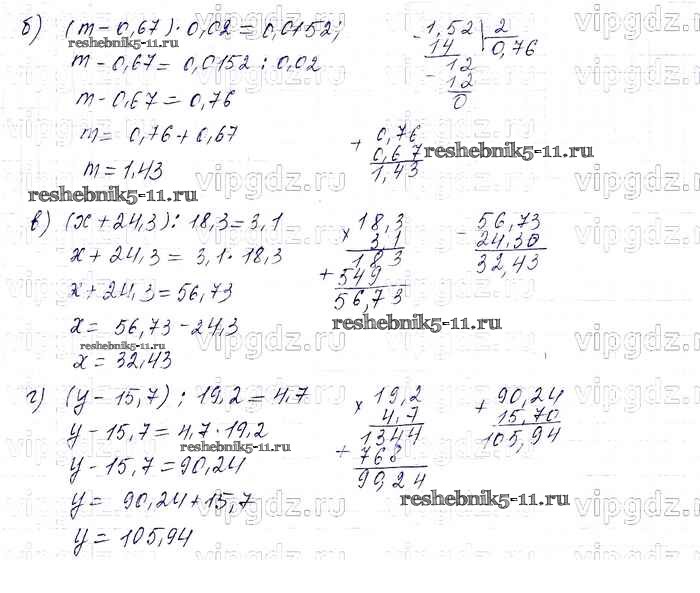 б) (m - 0,67) · 0,02 = 0,0152;
reshebnik5-11.ru
m - 0,67 = 0,0152 : 0,02
m - 0,67 = 0,76
m = 0,76 + 0,67
m = 1,43
reshebnik5-11.ru
- 1,52 | 2
14 0,76
12
- 12
0
+ 0,76
0,67
1,43
reshebnik5-11.ru
в) (x + 24,3) : 18,3 = 3,1
x + 24,3 = 3,1 · 18,3
x + 24,3 = 56,73
x = 56,73 - 24,3
reshebnik5-11.ru
x = 32,43
× 18,3
3,1
183
+ 549
56,73
- 56,73
24,30
32,43
reshebnik5-11.ru
г) (y - 15,7) : 19,2 = 4,7
y - 15,7 = 4,7 · 19,2
reshebnik5-11.ru
y - 15,7 = 90,24
y = 90,24 + 15,7
y = 105,94
× 19,2
4,7
1344
+ 768
90,24
+ 90,24
15,70
105,94
reshebnik5-11.ru
vipgdz.ru